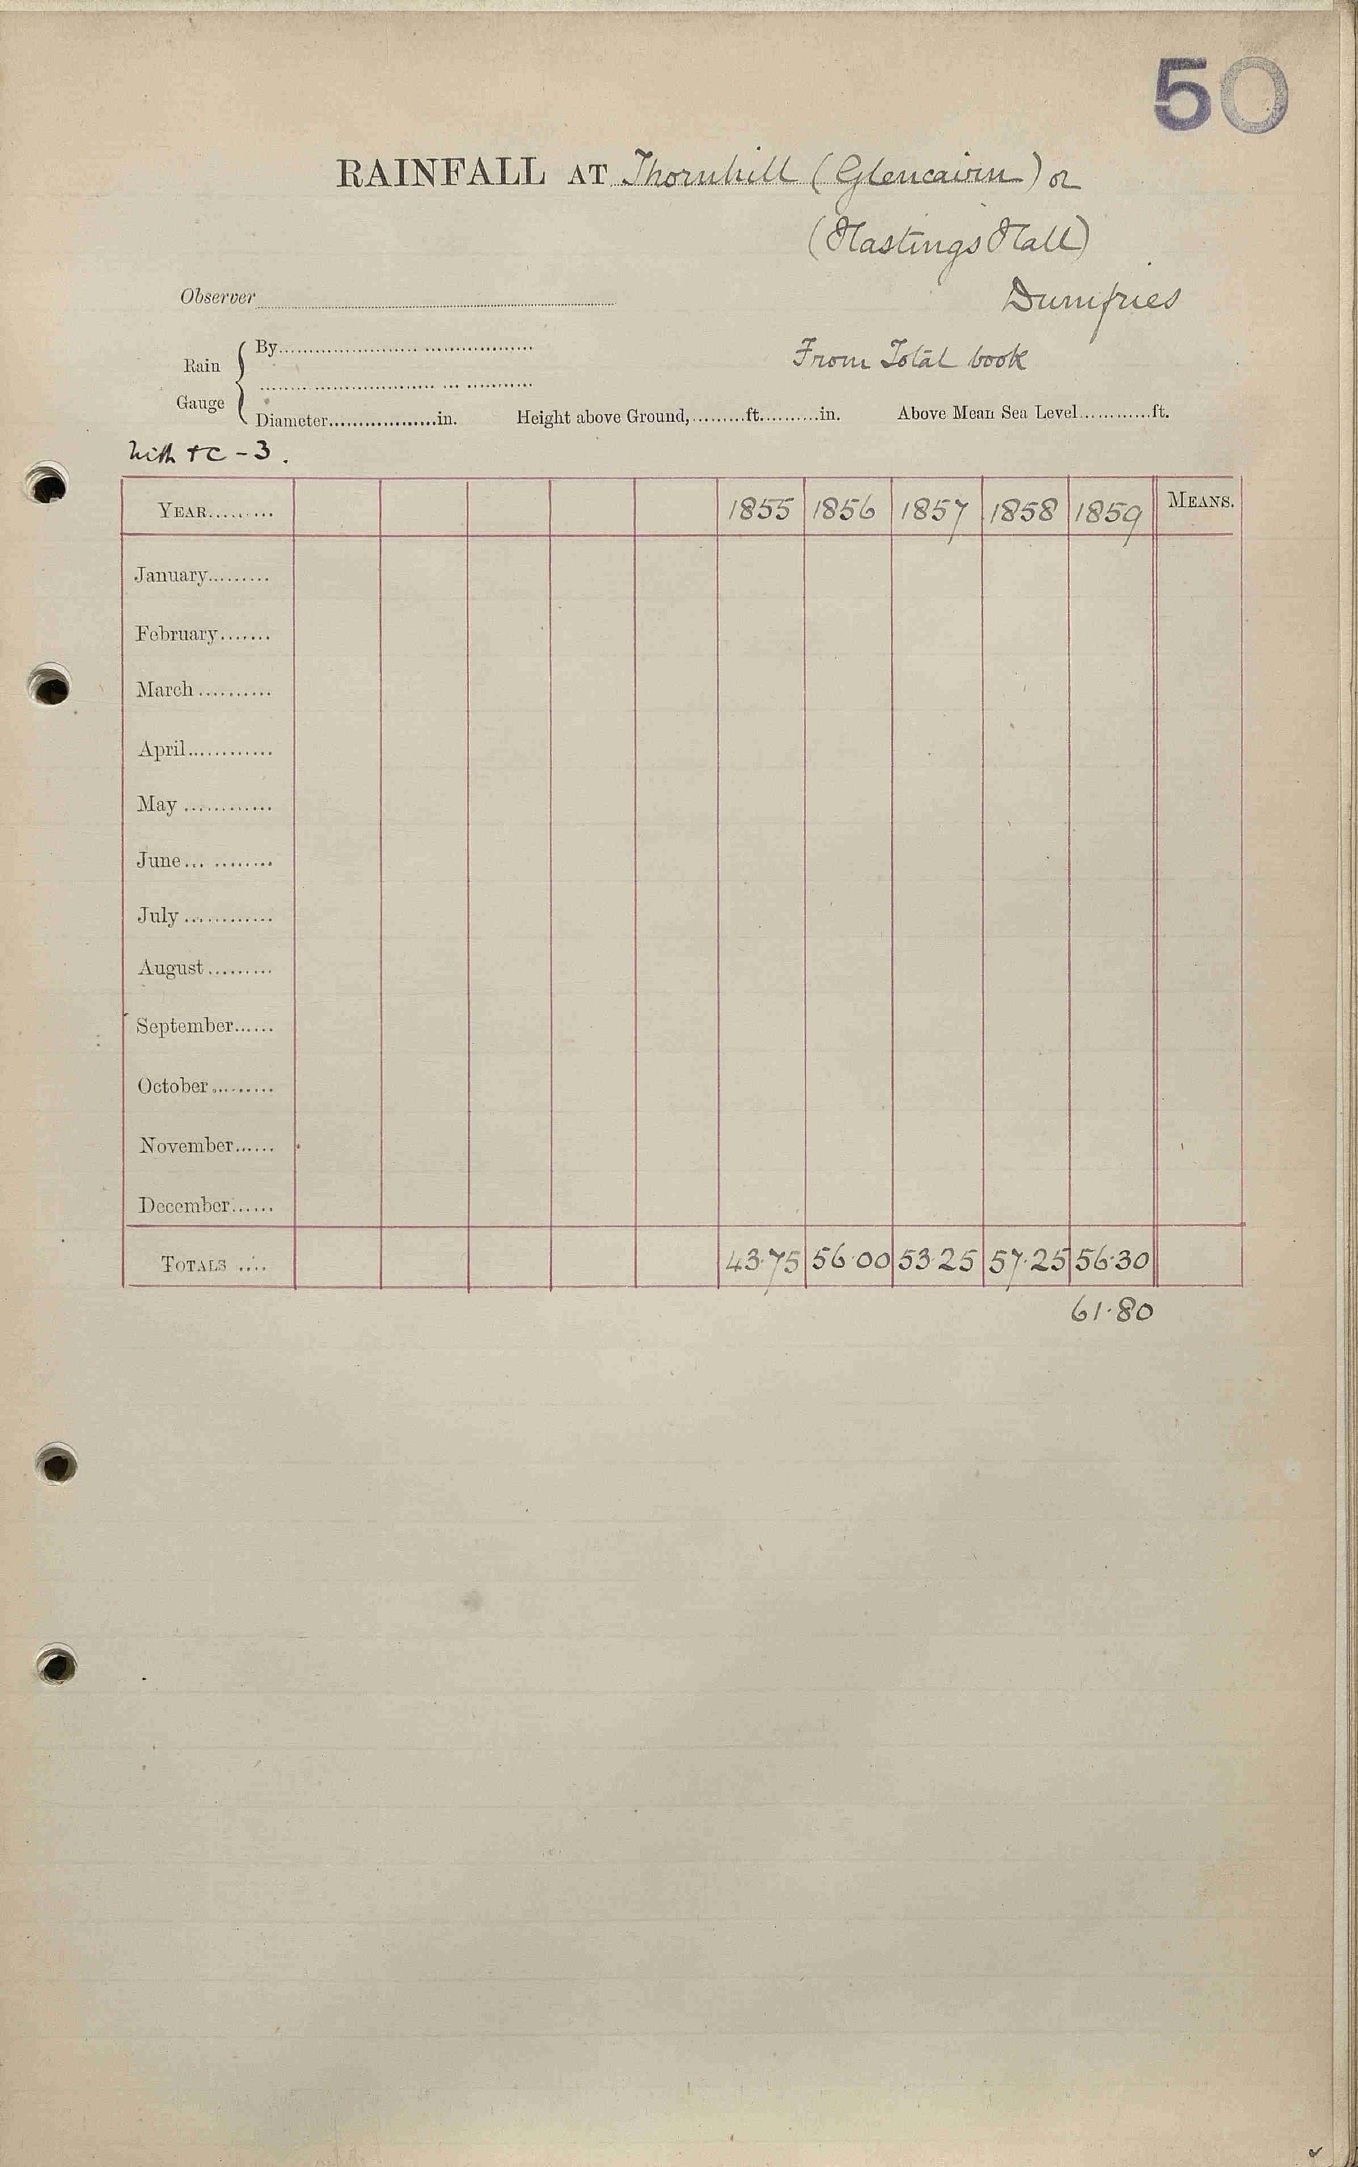 50
RAINFALL AT Thornhill (Glencairn) or
(Hastings Hall)
Observer Dumfries
Rain Gauge By
From Total book
Diameter in. Height above Ground, ft. in. Above Mean Sea Level ft.
Nith + C - 3.
YEAR 1855 1856 1857 1858 1859 MEANS.
January
February
March
April
May
June
July
August
September
October
November
December
TOTALS 43.75 56.00 53.25 57.25 56.30
61.80